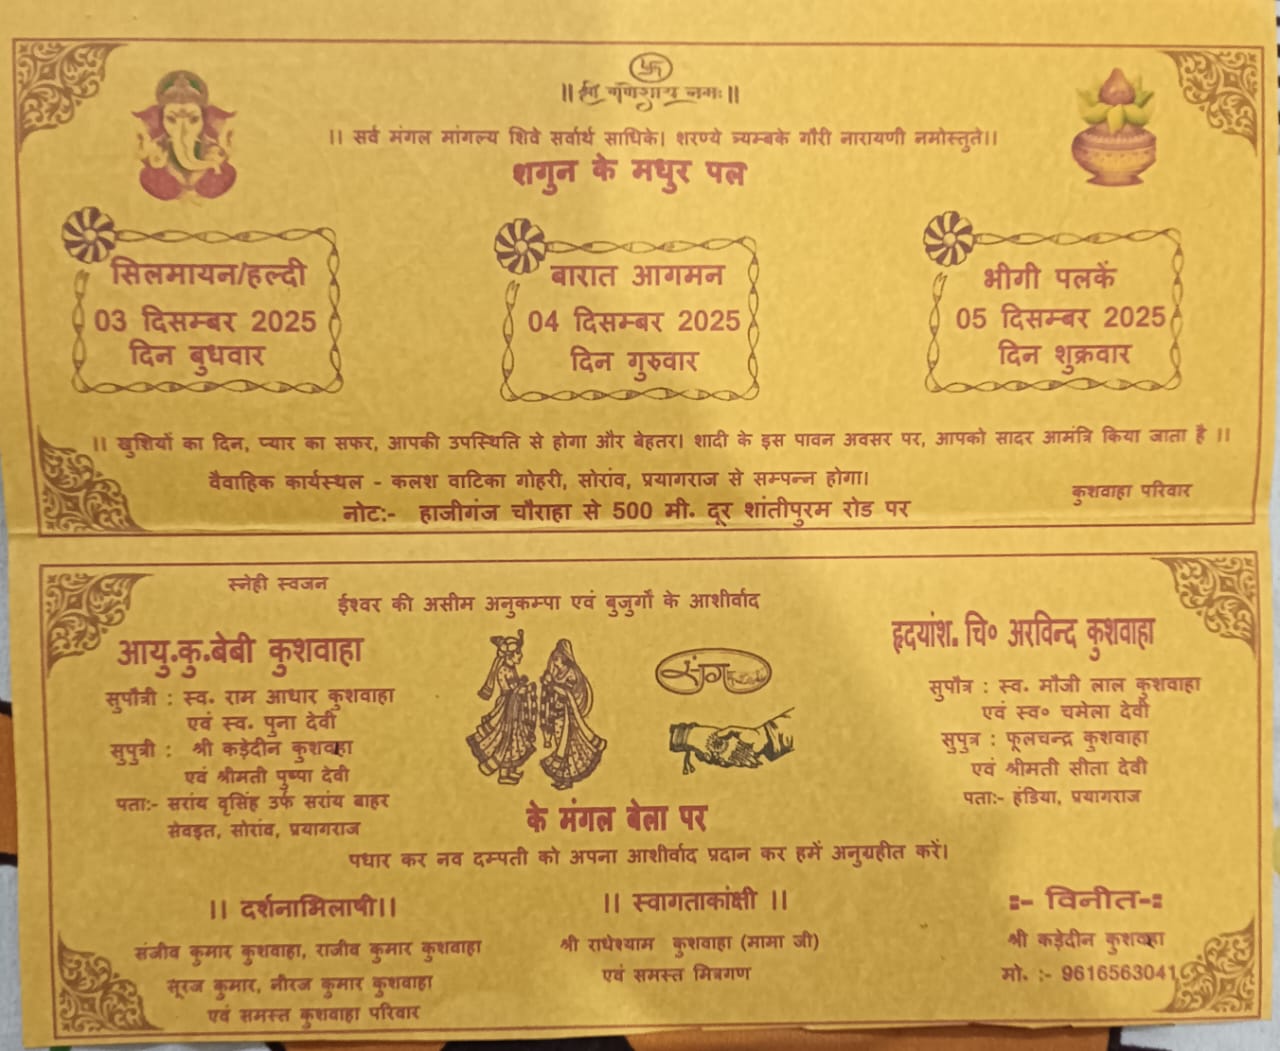 ।। श्री गणेशाय नमः ।।
।। सर्व मंगल मांगल्य शिवे सर्वार्थ साधिके। शरण्ये त्र्यम्बके गौरी नारायणी नमोस्तुते।।
शगुन के मधुर पल
सिलमायन/हल्दी
03 दिसम्बर 2025
दिन बुधवार
बारात आगमन
04 दिसम्बर 2025
दिन गुरुवार
भीगी पलकें
05 दिसम्बर 2025
दिन शुक्रवार
।। खुशियों का दिन, प्यार का सफर, आपकी उपस्थिति से होगा और बेहतर। शादी के इस पावन अवसर पर, आपको सादर आमंत्रि किया जाता है ।।
वैवाहिक कार्यस्थल - कलश वाटिका गोहरी, सोरांव, प्रयागराज से सम्पन्न होगा।
कुशवाहा परिवार
नोट:- हाजीगंज चौराहा से 500 मी. दूर शांतीपुरम रोड पर
स्नेही स्वजन
ईश्वर की असीम अनुकम्पा एवं बुजुर्गो के आशीर्वाद
आयु.कु.बेबी कुशवाहा
सुपौत्री : स्व. राम आधार कुशवाहा
एवं स्व. पुना देवी
सुपुत्री : श्री कड़ेदीन कुशवाहा
एवं श्रीमती पुष्पा देवी
पता:- सरांय वृसिंह उर्फ सरांय बाहर
सेवइत, सोरांव, प्रयागराज
संग
हृदयांश. चि० अरविन्द कुशवाहा
सुपौत्र : स्व. मौजी लाल कुशवाहा
एवं स्व० चमेला देवी
सुपुत्र : फूलचन्द्र कुशवाहा
एवं श्रीमती सीता देवी
पता:- हंडिया, प्रयागराज
के मंगल बेला पर
पधार कर नव दम्पती को अपना आशीर्वाद प्रदान कर हमें अनुग्रहीत करें।
।। दर्शनाभिलाषी।।
संजीव कुमार कुशवाहा, राजीव कुमार कुशवाहा
सूरज कुमार, नीरज कुमार कुशवाहा
एवं समस्त कुशवाहा परिवार
।। स्वागताकांक्षी ।।
श्री राधेश्याम कुशवाहा (मामा जी)
एवं समस्त मित्रगण
:- विनीत-:
श्री कड़ेदीन कुशवाहा
मो. :- 9616563041